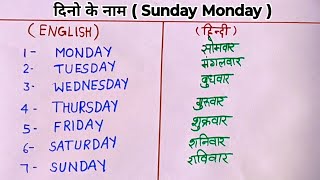 दिनो के नाम ( Sunday Monday )
(ENGLISH) (हिन्दी)
1- MONDAY सोमवार
2- TUESDAY मंगलवार
3- WEDNESDAY बुधवार
4- THURSDAY गुरुवार
5- FRIDAY शुक्रवार
6- SATURDAY शनिवार
7- SUNDAY रविवार